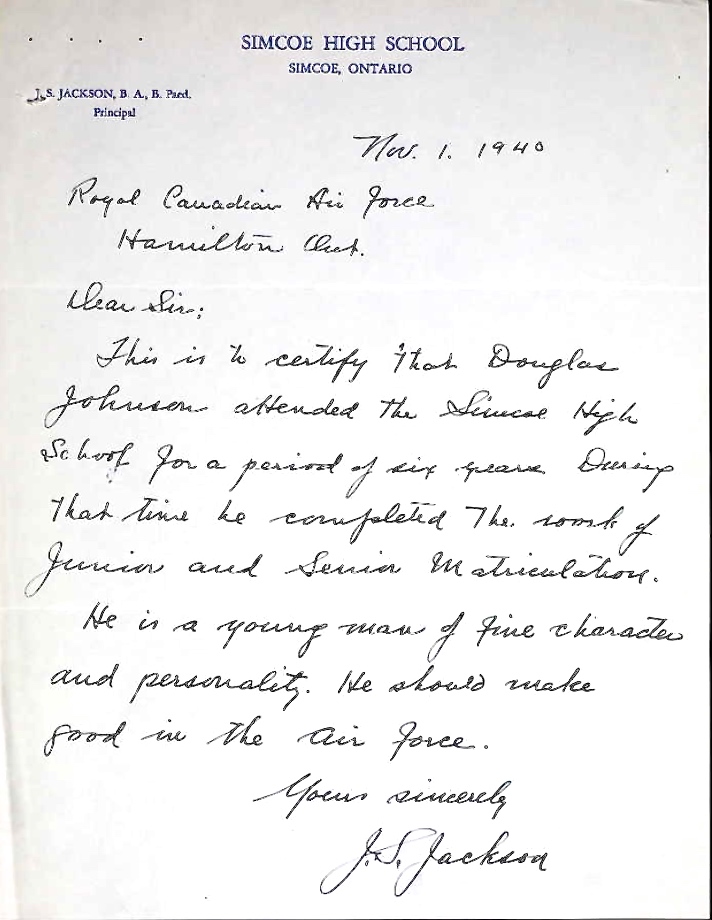 SIMCOE HIGH SCHOOL
SIMCOE, ONTARIO
J. S. JACKSON, B. A., B. Paed.
Principal
Nov. 1. 1940
Royal Canadian Air Force
Hamilton Ont.
Dear Sir;
This is to certify that Douglas
Johnson attended the Simcoe High
School for a period of six years. During
that time he completed the work of
Junior and Senior Matriculation.
He is a young man of fine character
and personality. He should make
good in the air force.
Yours sincerely
J.S. Jackson